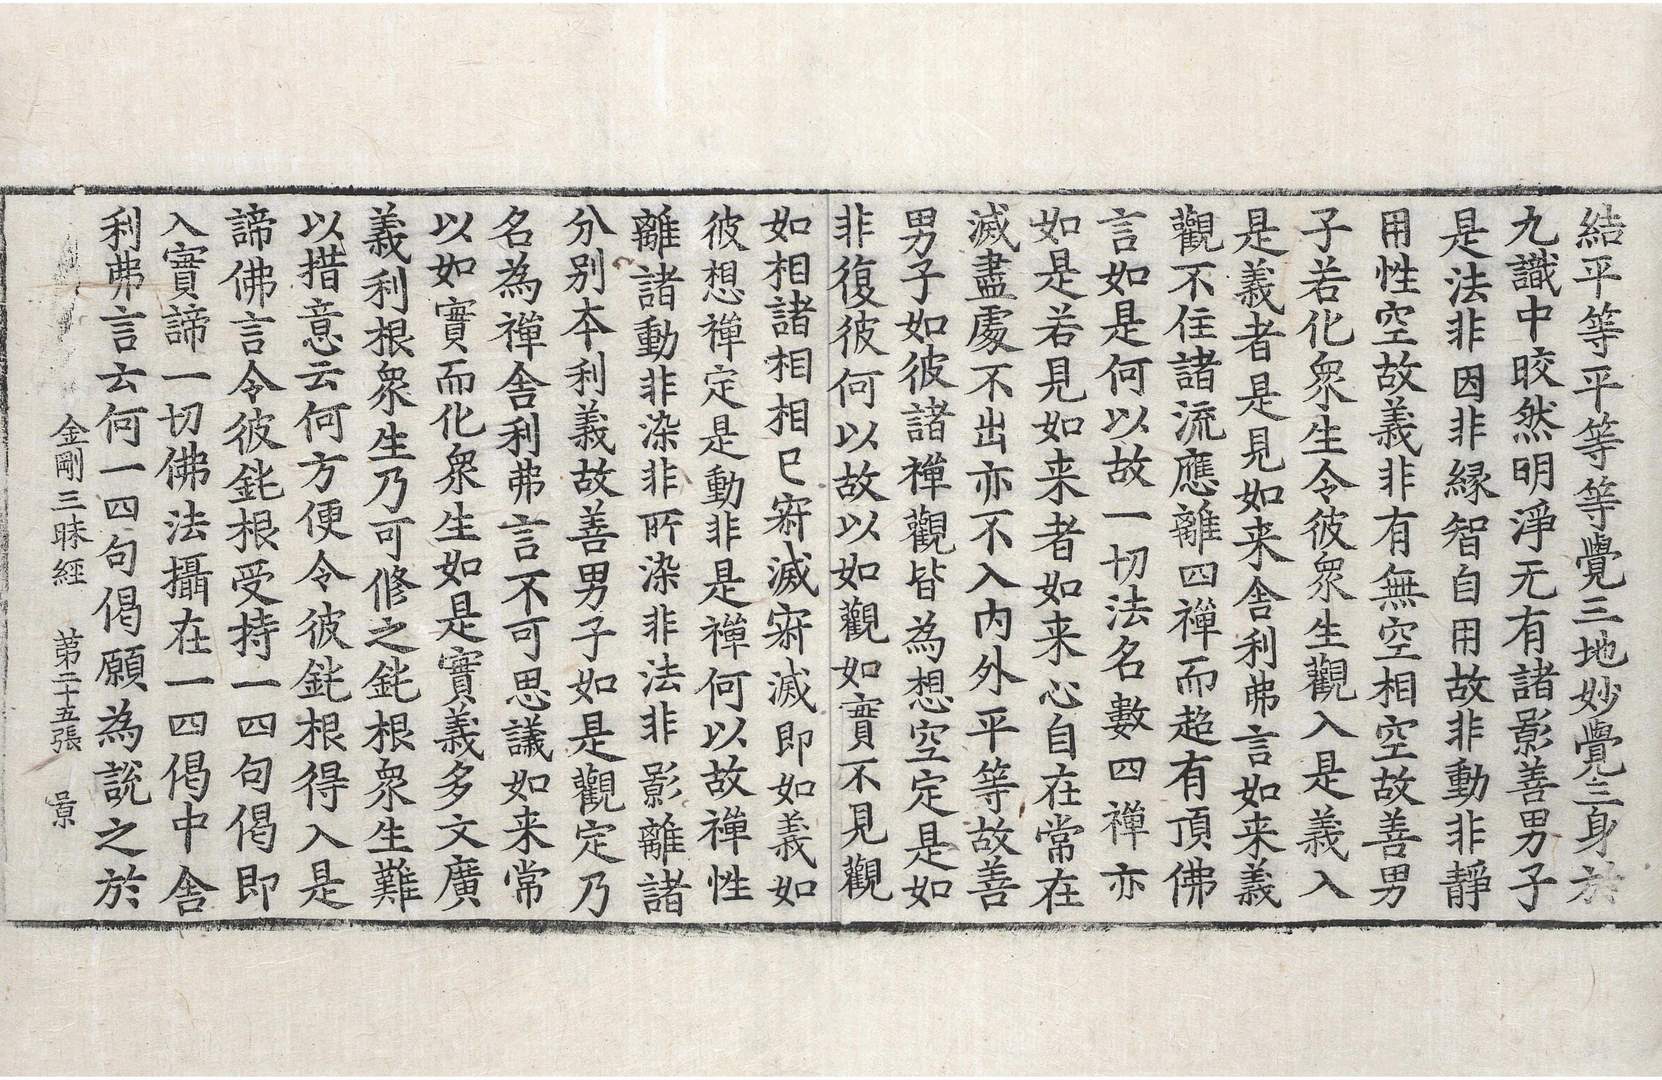 結平等平等等覺三地妙覺三身於
九識中皎然明淨无有諸影善男子
是法非因非緣智自用故非動非靜
用性空故義非有無空相空故善男
子若化衆生令彼衆生觀入是義入
是義者是見如来舍利弗言如来義
觀不住諸流應離四禪而超有頂佛
言如是何以故一切法名數四禪亦
如是若見如来者如来心自在常在
滅盡處不出亦不入內外平等故善
男子如彼諸禪觀皆為想空定是如
非復彼何以故以如觀如實不見觀
如相諸相相已寂滅寂滅即如義如
彼想禪定是動非是禪何以故禪性
離諸動非染非所染非法非影離諸
分別本利義故善男子如是觀定乃
名為禪舍利弗言不可思議如来常
以如實而化衆生如是實義多文廣
義利根衆生乃可修之鈍根衆生難
以措意云何方便令彼鈍根得入是
諦佛言令彼鈍根受持一四句偈即
入實諦一切佛法攝在一四偈中舍
利弗言云何一四句偈願為說之於
金剛三昧經 第二十五張 景